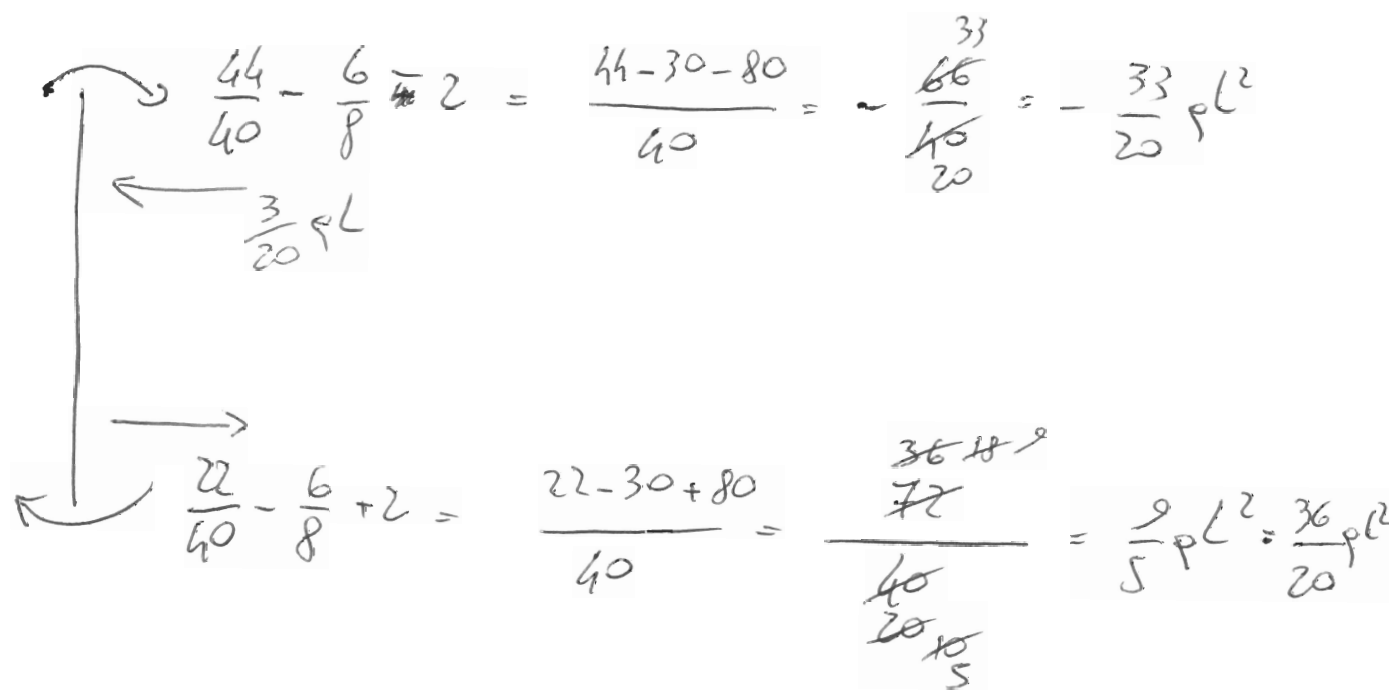 44/40 - 6/8 - 2 = (44 - 30 - 80)/40 = - 66/40 33 20 = - 33/20 qL²
3/20 qL
22/40 - 6/8 + 2 = (22 - 30 + 80)/40 = 36 18 9 72/40 20 10 5 = 9/5 qL² = 36/20 qL²